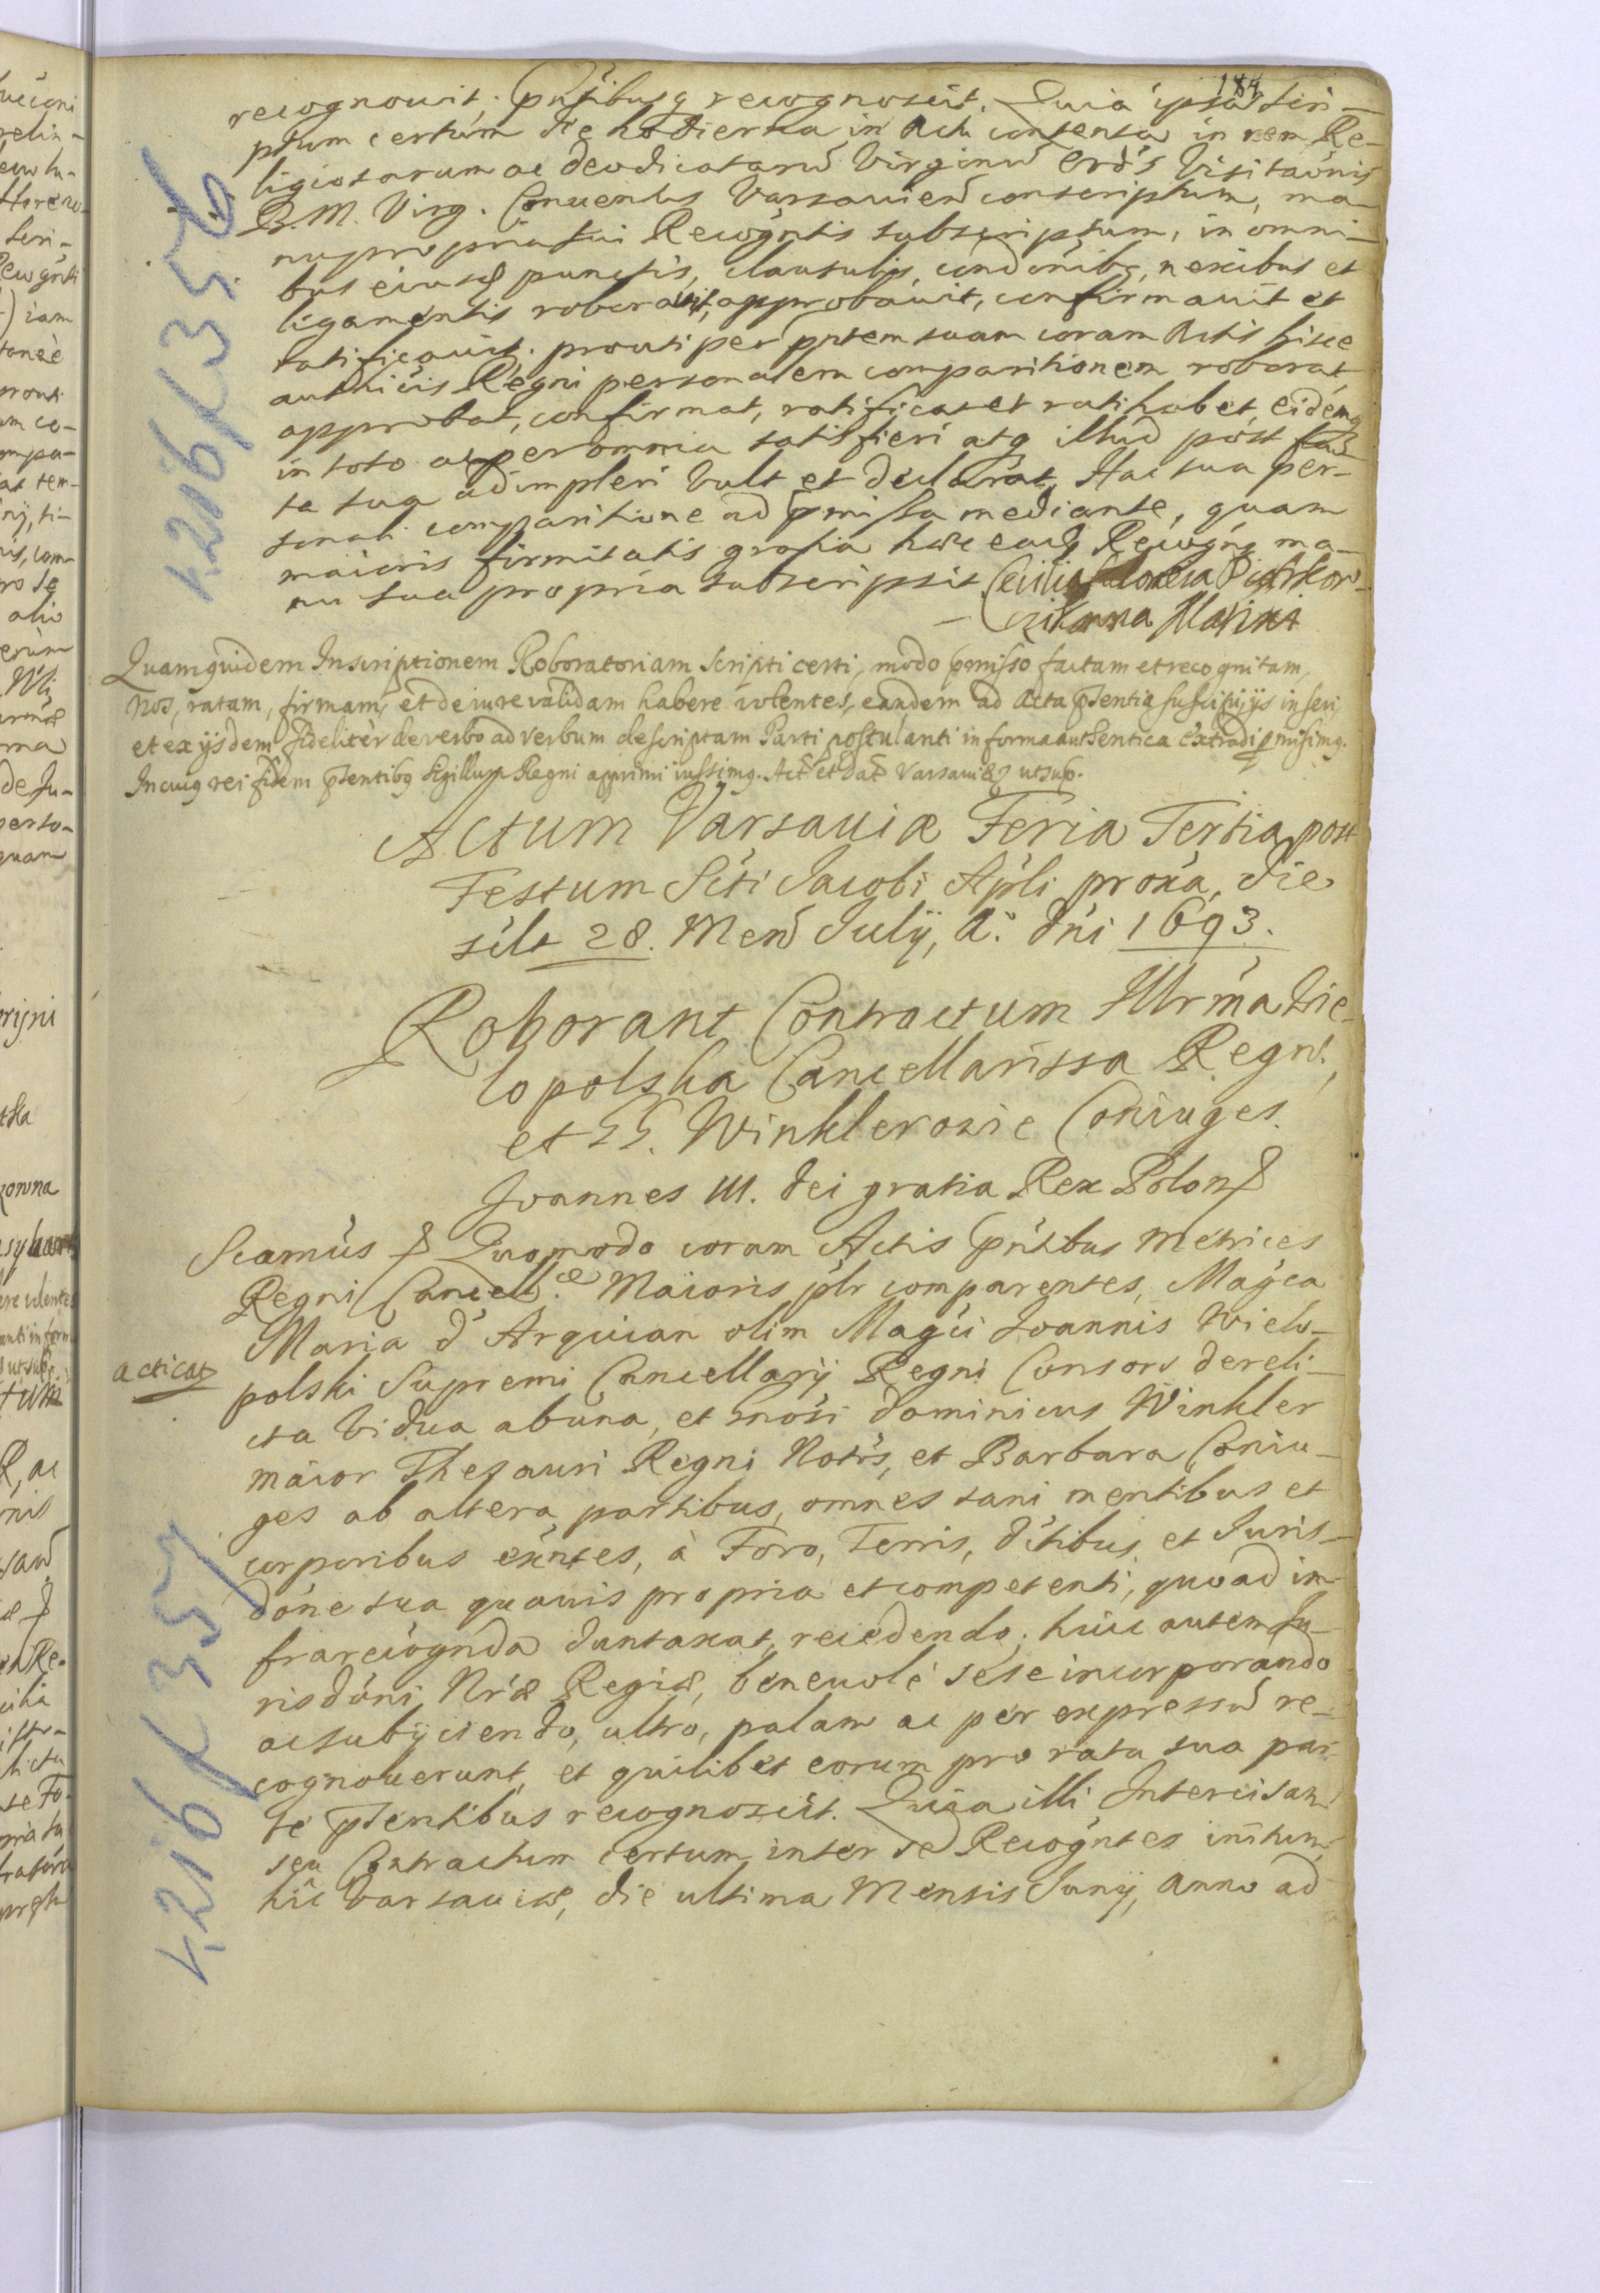 184
recognouit, pntibusq recognoscit. Quia ipsa scri-
ptum certum die hodierna in Actu contenta in rem Re-
ligiosarum ac deodicatarū Virginū Ord's Visitaōnis
B. M. Virg. Conuentus Varsauien conscriptum, ma-
nu propria sui Recogntis subscriptum, in omni-
bus eiusd punctis, clausulis, condōnibs, nexibus et
ligamentis roborauit, approbauit, confirmauit et
ratificauit. prouti per pntem suam coram Actis hisce
authicis Regni personalem comparitionem roborat
approbat, confirmat, ratificat et ratihabet, eidemq
in toto ac per omnia satisfieri atq illud post
te sua adimpleri vult et declarat. Hac sua per-
sonali comparitione ad pmissa mediante, quam
maioris firmitatis gratia hic eadq Recogns ma-
nu sua propria subscripsit Cecilia
Quamquidem Inscriptionem Roboratoriam Scripti certi, modo pmisso factam et recognitam,
Nos, ratam, firmam, et de iure validam habere volentes, eandem ad Acta pſentia suscipi, ijs inseri,
et ex ijsdem fideliter de verbo ad verbum descriptam Parti postulanti in forma authentica extradi pmisimq.
In cuiq rei fidem pſentibq Sigillum Regni apprimi iussimq. Act et Dat Varsauiæ ut sup.
Actum Varsauiæ Feria Tertia post
Festum Scti Jacobi Apli proxa, die
silt 28. Men July, A. dni 1693.
Roborant Contractum Illrma Wie-
lopolska Cancellarissa Regni,
et GG. Winklerowie Coniuges.
Joannes III. Dei gratia Rex Polon &
Scamus & Quomodo coram Actis pntibus Metrices
Regni Cancell.æ Maioris plr comparentes, Magca
Maria d' Arquian olim Magci Joannis Wielo-
acticat
polski Supremi Cancellarij Regni Consors dereli-
cta Vidua ab una, et Gnosi Dominicus Winkler
maior Thesauri Regni Notrs, et Barbara Coniu-
ges ab altera partibus, omnes sani mentibus et
corporibus exntes, à Foro, Terris, dctibus et Juris-
done sua quauis propria et competenti, quo ad in-
frarecognda duntaxat, recedendo; huic autem Ju-
risdōni Nræ Regiæ, beneuole sese incorporando
ac subijciendo, ultro, palam ac per expressū re-
cognouerunt, et quilibet eorum pro rata sua par-
te pſentibus recognoscit. Quia illi Intercisam
seu Contractum certum inter se Recogntes initum,
hic Varsauiæ, die ultima Mensis Junij, anno ad
1, 216 / 356
1, 216 / 357